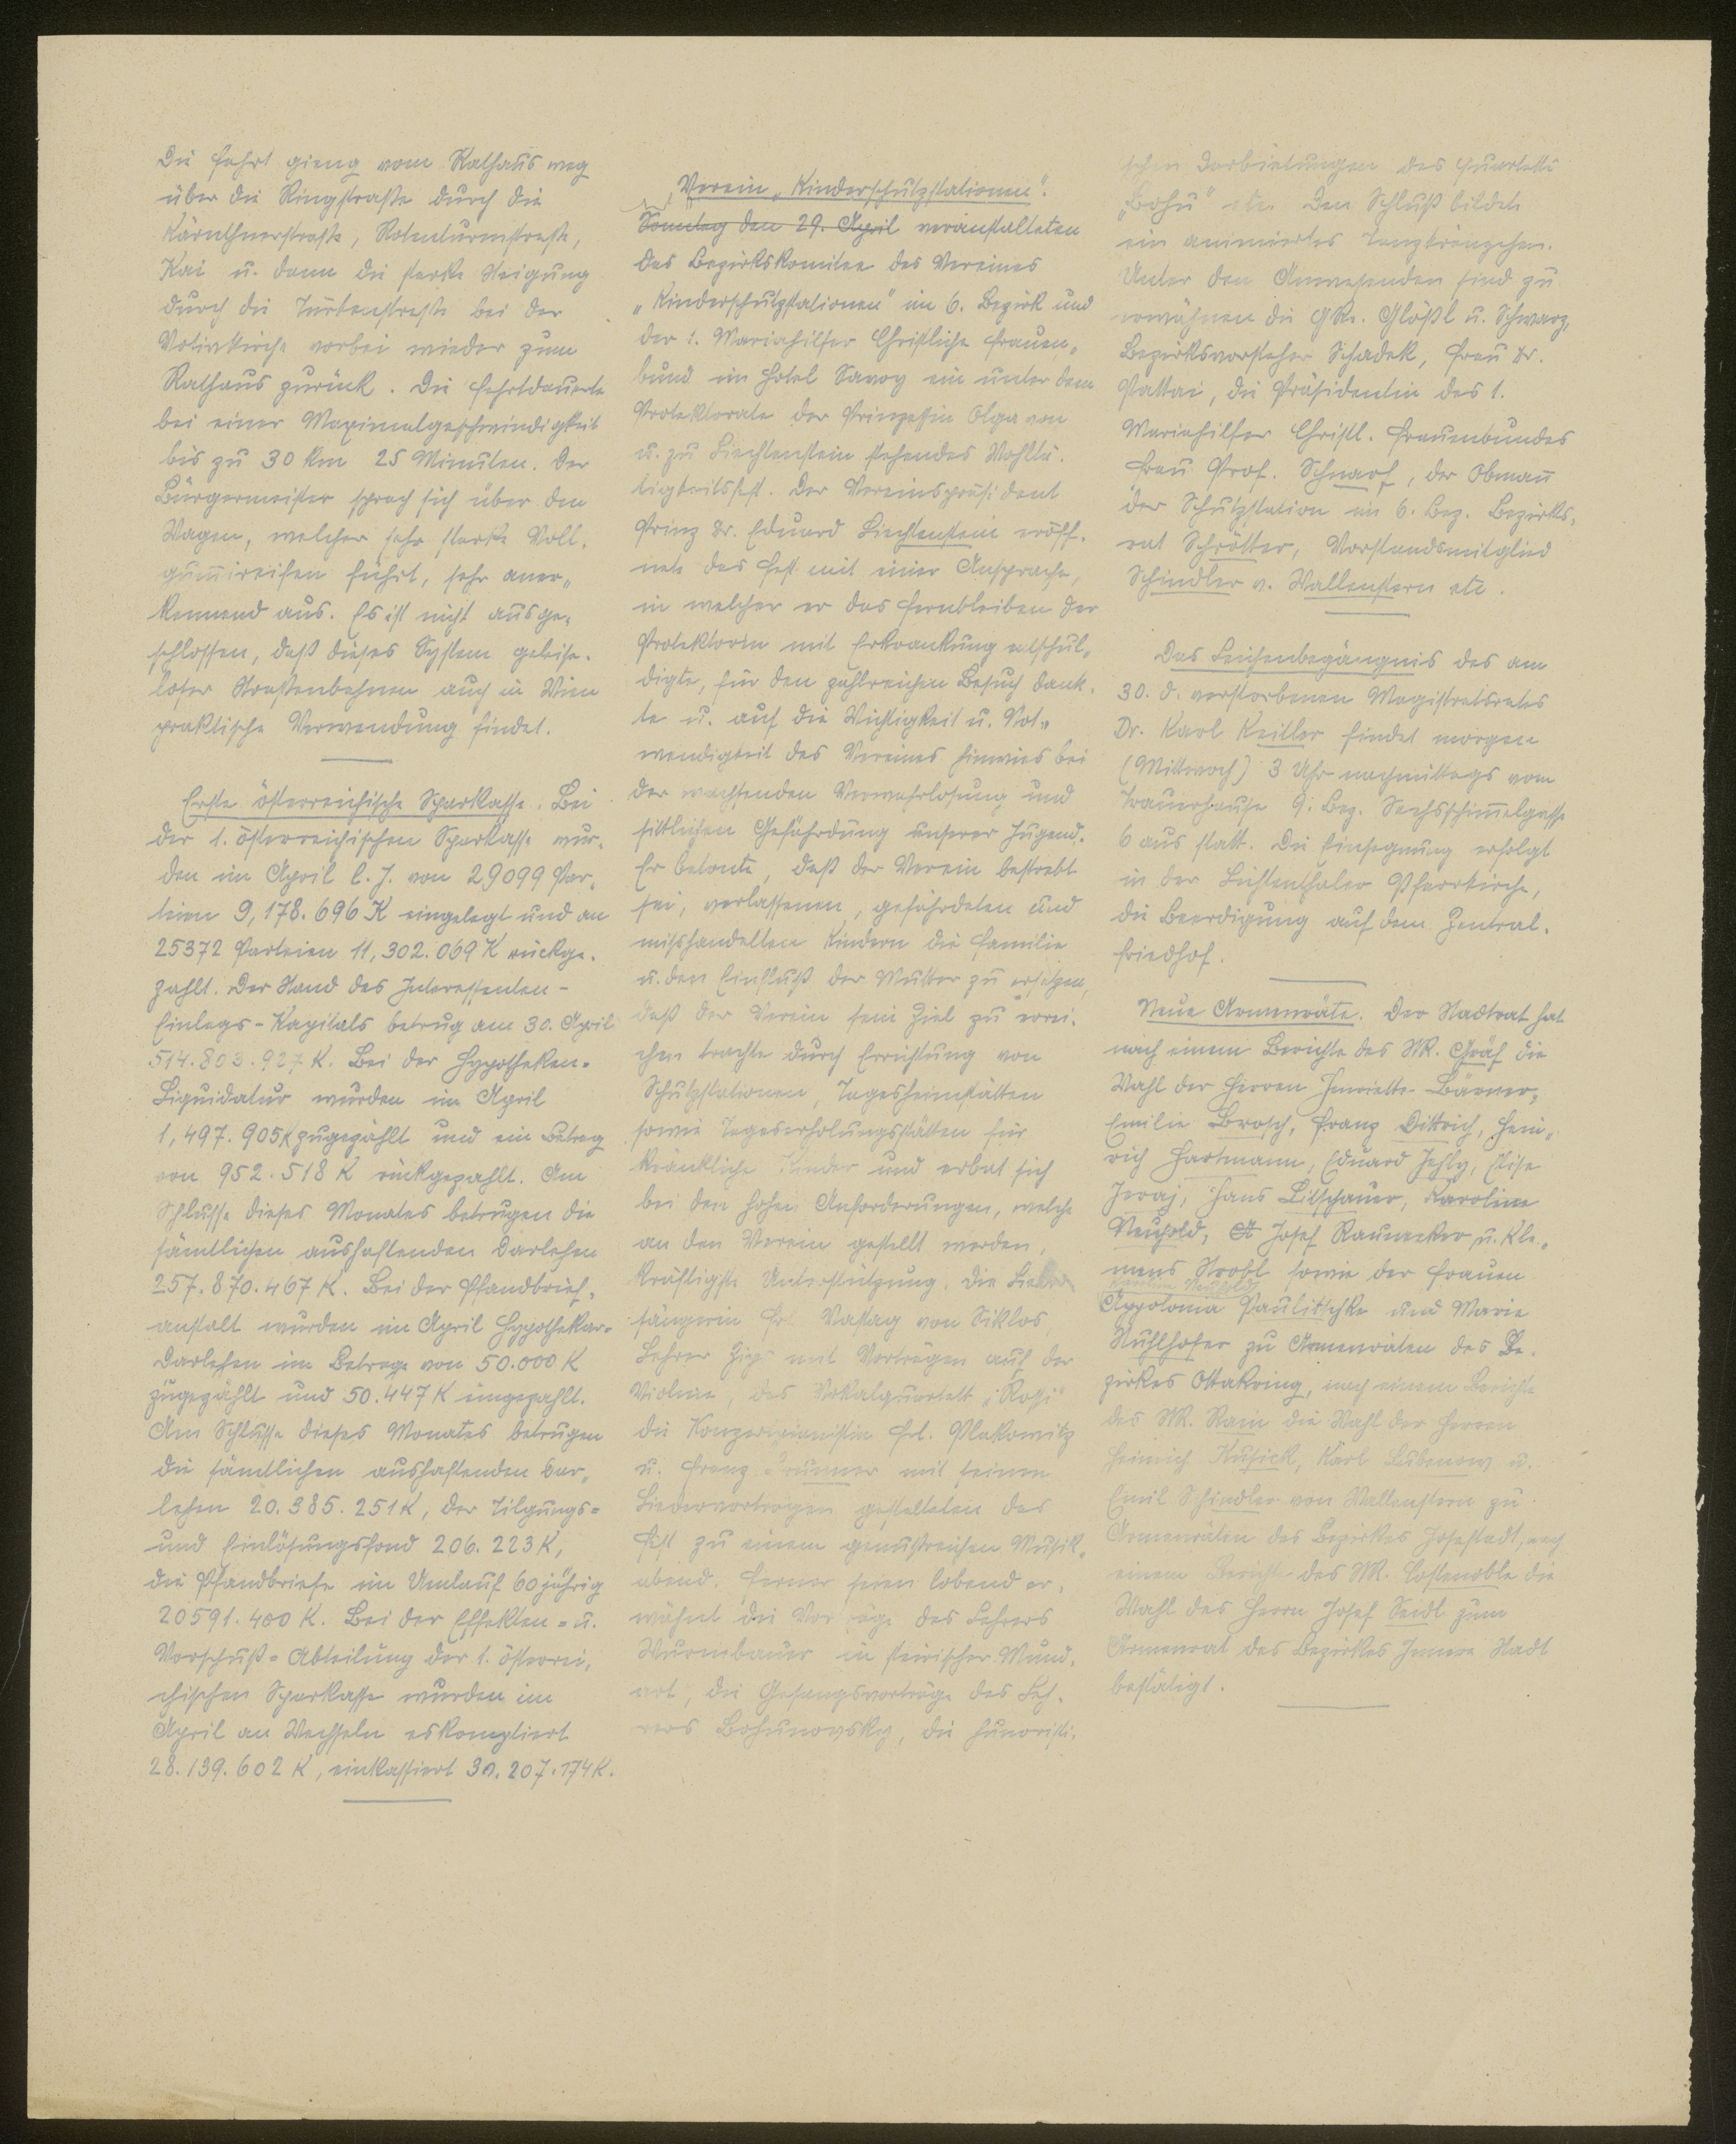 Die Fahrt gieng vom Rathaus weg
über die Ringstraße durch die
Kärnthnerstraße, Rotenturmstraße,
Kai u. dann die starke Steigung
durch die Türkenstraße bei der
Votivkirche vorbei wieder zum
Rathaus zurück. Die Fahrt dauerte
bei einer Maximalgeschwindigkeit
bis zu 30 Km 25 Minuten. Der
Bürgermeister sprach sich über den
Wagen, welcher sehr starke Voll-
gummireifen führt, sehr aner-
kennend aus. Es ist nicht ausge-
schlossen, daß dieses System geleise-
loser Straßenbahnen auch in Wien
praktische Verwendung findet.
Erste österreichische Sparkasse. Bei
der 1. österreichischen Sparkasse wur-
den im April l. J. von 29099 Par-
teien 9,178.696 K eingelegt und an
25372 Parteien 11,302.069 K rückge-
zahlt. Der Stand des Interessenten-
Einlags-Kapitals betrug am 30. April
514.803.927 K. Bei der Hypotheken-
Liquidatur wurden im April
1,497.905 K zugezählt und ein Betrag
von 952.518 K rückgezahlt. Am
Schlusse dieses Monates betrugen die
sämtlichen aushaftenden Darlehen
257.870.467 K. Bei der Pfandbrief-
anstalt wurden im April Hypothekar-
Darlehen im Betrage von 50.000 K
zugezählt und 50.447 K eingezahlt.
Am Schlusse dieses Monates betrugen
die sämtlichen aushaftenden Dar-
lehen 20.385.251 K, der Tilgungs-
und Einlösungsfond 206.223 K,
die Pfandbriefe im Umlauf 60 jährig
20591.400 K. Bei der Effekten- u.
Vorschuß-Abteilung der 1. österrei-
chischen Sparkasse wurden im
April an Wechseln eskomptiert
28.139.602 K, einkassiert 30.207.174 K.
Verein „Kinderschutzstationen".
Sonntag den 29. April veranstalteten
das Bezirkskomitee des Vereines
„Kinderschutzstationen" im 6. Bezirk und
der 1. Mariahilfer Christliche Frauen-
bund im Hotel Savoy ein unter dem
Protektorate der Prinzessin Olga von
u. zu Liechtenstein stehendes Wohltä-
tigkeitsfest. Der Vereinspräsident
Prinz Dr. Eduard Liechtenstein eröff-
nete das Fest mit einer Ansprache,
in welcher er das Fernbleiben der
Protektorin mit Erkrankung entschul-
digte, für den zahlreichen Besuch dank-
te u. auf die Wichtigkeit u. Not-
wendigkeit des Vereines hinwies bei
der wachsenden Verwahrlosung und
sittlichen Gefährdung unserer Jugend.
Er betonte, daß der Verein bestrebt
sei, verlassenen, gefährdeten und
misshandelten Kindern die Familie
u. den Einfluß der Mutter zu ersetzen,
daß der Verein sein Ziel zu errei-
chen trachte durch Errichtung von
Schutzstationen, Tagesheimstätten
sowie Tageserholungsstätten für
kränkliche Kinder und erbat sich
bei den hohen Anforderungen, welche
an den Verein gestellt werden,
kräftigste Unterstützung. Die Lieder-
sängerin Frl. Vastag von Siklos,
Lehrer mit Vorträgen auf der
Violine, das Vokalquartett
die Konzertpianistin Frl. Plakowitz
u. Franz mit seinen
Liedervorträgen gestalteten das
Fest zu einem genußreichen Musik-
abend. Ferner seien lobend er-
wähnt die Vorträge des Lehrers
Wurmbauer in steirischer Mund-
art, die Gesangsvorträge des Leh-
rers Bohunovsky, die humoristi-
schen Darbietungen des Quartetts
„Bohu" etc. Den Schluß bildete
ein animiertes Tanzkränzchen.
Unter den Anwesenden sind zu
erwähnen die GRe. Glößl u. Schwarz,
Bezirksvorsteher Schadek, Frau Dr.
Pattai, die Präsidentin des 1.
Mariahilfer Christl. Frauenbundes
Frau Prof. Schnarf, der Obmann
der Schutzstation im 6. Bez. Bezirks-
rat Schrötter, Vorstandsmitglied
Schindler v. Wallenstern etc.
Das Leichenbegängnis des am
30. d. verstorbenen Magistratsrates
Dr. Karl Keitler findet morgen
(Mittwoch) 3 Uhr nachmittags vom
Trauerhause 9. Bez. Sechsschimmelgasse
6 aus statt. Die Einsegnung erfolgt
in der Lichtenthaler Pfarrkirche,
die Beerdigung auf dem Zentral-
friedhof.
Neue Armenräte. Der Stadtrat hat
nach einem Berichte des StR. Gräf die
Wahl der Herren Henriette Bärner,
Emilie Brosch, Franz Dittrich, Hein-
rich Hartmann, Eduard Jehly, Elise
Jeraj, Hans Litschauer, Karoline
Neuhold, A Josef Raunecker u. Kle-
mens Strobl sowie der Frauen
Karoline Neuhold
Appolonia Paulitschke und Marie
Stuhlhofer zu Armenräten des Be-
zirkes Ottakring, nach einem Berichte
des StR. Rain die Wahl der Herren
Heinrich Kusick, Karl Lubenow u.
Emil Schindler von Wallenstern zu
Armenräten des Bezirkes Josefstadt, nach
einem Berichte des StR. Costenoble die
Wahl des Herrn Josef Seidl zum
Armenrat des Bezirkes Innere Stadt
bestätigt.